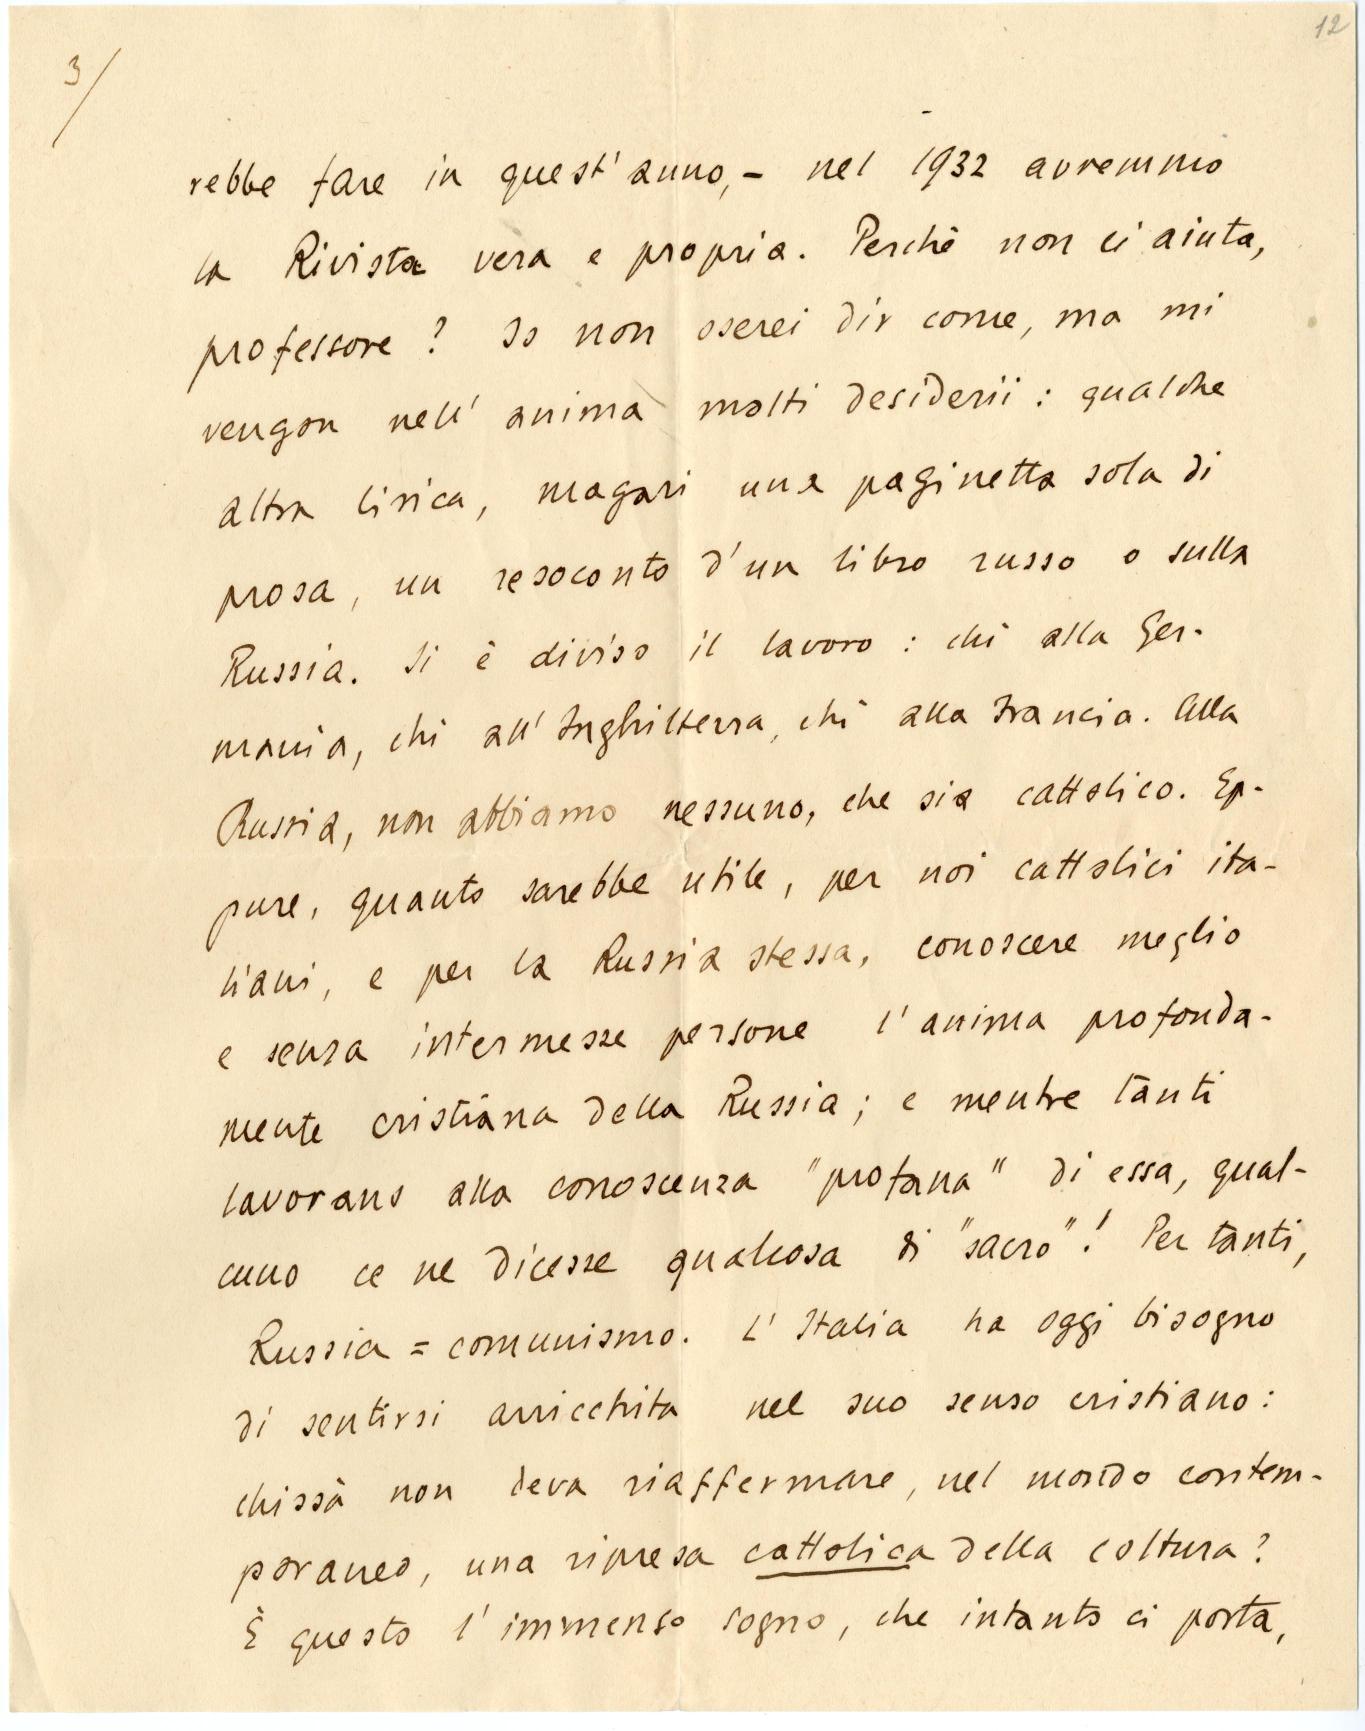 12
3/
rebbe fare in quest'anno, – nel 1932 avremmo
la Rivista vera e propria. Perchè non ci aiuta,
professore? Io non oserei dir come, ma mi
vengon nell'anima molti desiderii: qualche
altra lirica, magari una paginetta sola di
prosa, un resoconto d'un libro russo o sulla
Russia. Si è diviso il lavoro: chi alla Ger-
mania, chi all'Inghilterra, chi alla Francia. Alla
Russia, non abbiamo nessuno, che sia cattolico. Ep-
pure, quanto sarebbe utile, per noi cattolici ita-
liani, e per la Russia stessa, conoscere meglio
e senza intermesse persone l'anima profonda-
mente cristiana della Russia; e mentre tanti
lavorano alla conoscenza "profana" di essa, qual-
cuno ce ne dicesse qualcosa di "sacro"! Per tanti,
Russia = comunismo. L'Italia ha oggi bisogno
di sentirsi arricchita nel suo senso cristiano:
chissà non deva riaffermare, nel mondo contem-
poraneo, una ripresa cattolica della coltura?
È questo l'immenso sogno, che intanto ci porta,